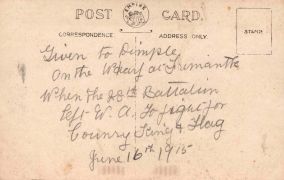 POST CARD.
EMPIRE
CORRESPONDENCE ADDRESS ONLY.
STAMP
Given to Dimple
On the Wharf at Fremantle
When the 28th Battalion
Left W. A. To fight for
Counry King & Flag
June 16th 1915